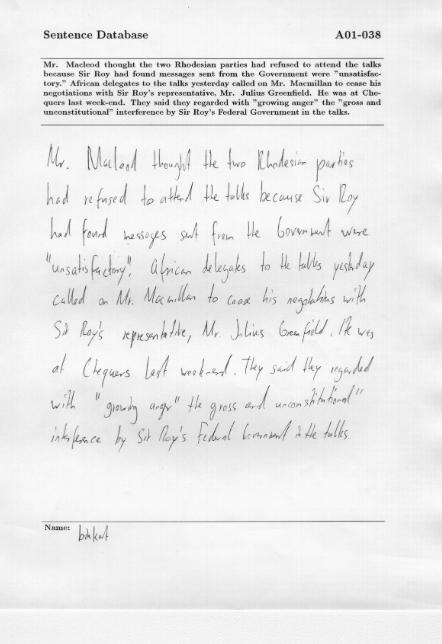 Sentence Database A01-038
Mr. Macleod thought the two Rhodesian parties had refused to attend the talks
because Sir Roy had found messages sent from the Government were "unsatisfac-
tory." African delegates to the talks yesterday called on Mr. Macmillan to cease his
negotiations with Sir Roy's representative, Mr. Julius Greenfield. He was at Che-
quers last week-end. They said they regarded with "growing anger" the "gross and
unconstitutional" interference by Sir Roy's Federal Government in the talks.
Mr. Macleod thought the two Rhodesian parties
had refused to attend the talks because Sir Roy
had found messages sent from the Government were
"unsatisfactory". African delegates to the talks yesterday
called on Mr. Macmillan to cease his negotiations with
Sir Roy's representative, Mr. Julius Greenfield. He was
at Chequers last weekend. They said they regarded
with "growing anger" the gross and unconstitutional"
interference by Sir Roy's Federal Government in the talks.
Name: